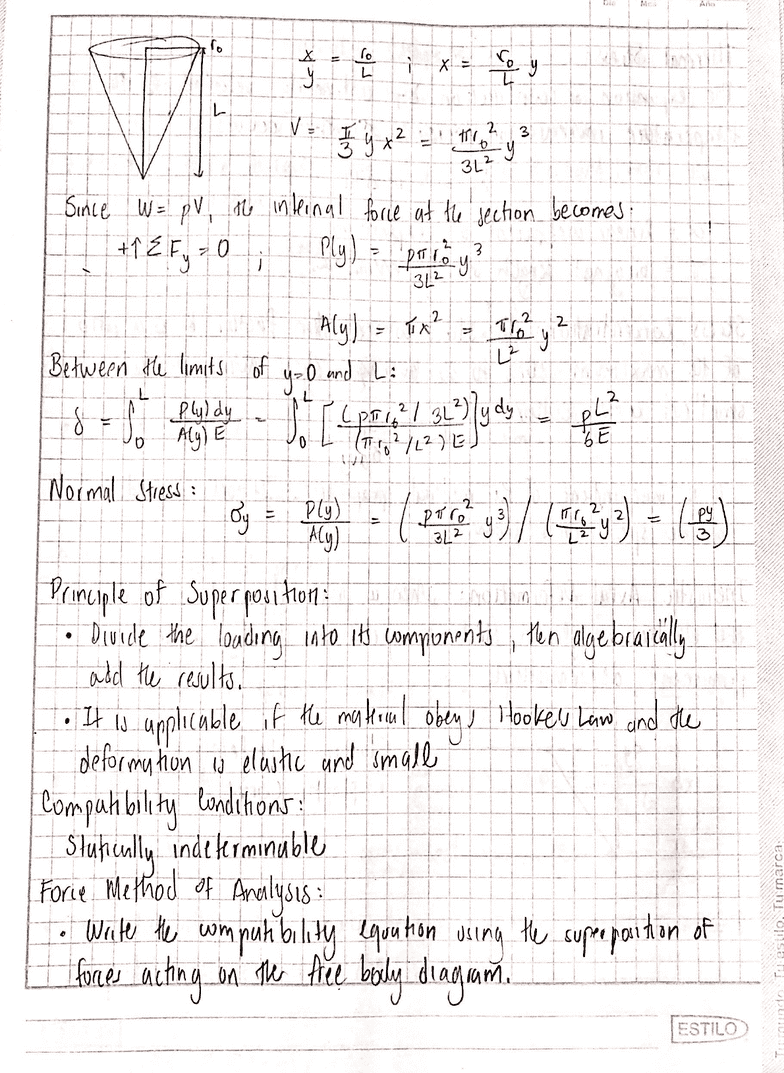 Dia Mes Año
r₀
L
x/y = r₀/L ; x = r₀/L y
V = π/3 y x² = πr₀²/3L² y³
Since W = ρV, the internal force at the section becomes:
+↑ΣFy = 0 ; P(y) = ρπr₀²/3L² y³
A(y) = πx² = πr₀²/L² y²
Between the limits of y=0 and L:
δ = ∫₀ᴸ P(y)dy/A(y)E = ∫₀ᴸ [(ρπr₀²/3L²)/(πr₀²/L²)E] y dy = ρL²/6E
Normal Stress:
σy = P(y)/A(y) = (ρπr₀²/3L² y³) / (πr₀²/L² y²) = (ρy/3)
Principle of Superposition:
• Divide the loading into its components, then algebraically
add the results.
• It is applicable if the material obeys Hookes Law and the
deformation is elastic and small
Compatibility Conditions:
Statically indeterminable
Force Method of Analysis:
• Write the compatibility equation using the superposition of
forces acting on the free body diagram.
ESTILO
Tu marca.